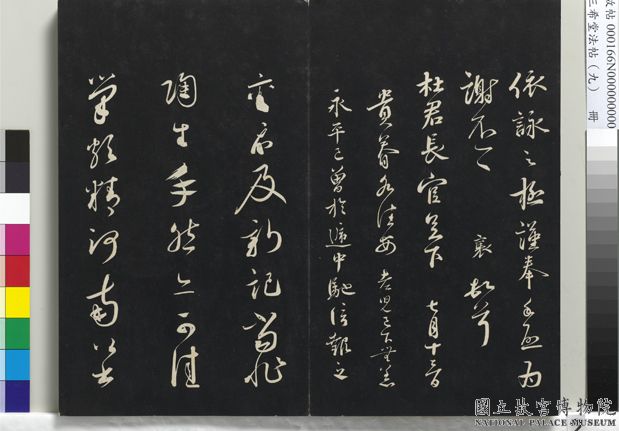 依詠之極謹奉手啟為
謝不一一 襄頓首
杜君長官足下 七月十三日
貴眷各佳安 老兒已下無恙
永平已曾於遞中馳信報之
及新記當非
陶生手然亦可佳
筆頗精
國立故宮博物院
NATIONAL PALACE MUSEUM
000166N000000000
三希堂法帖(九) 冊